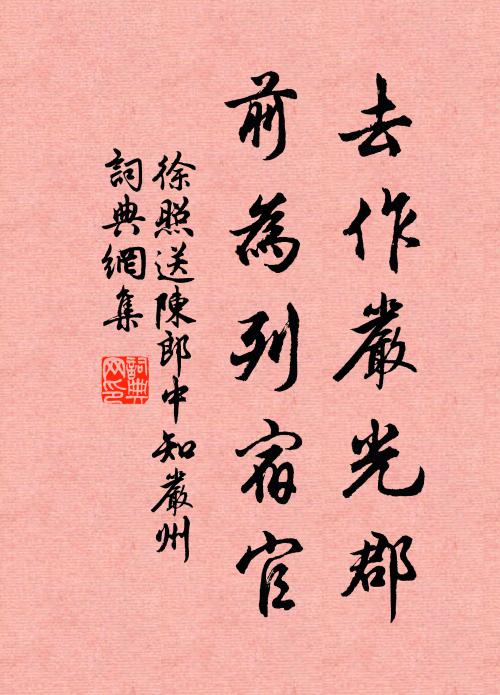 去作嚴光郡
前為列宿官
徐照送陳郎中知嚴州
詞典網集
詞典網印